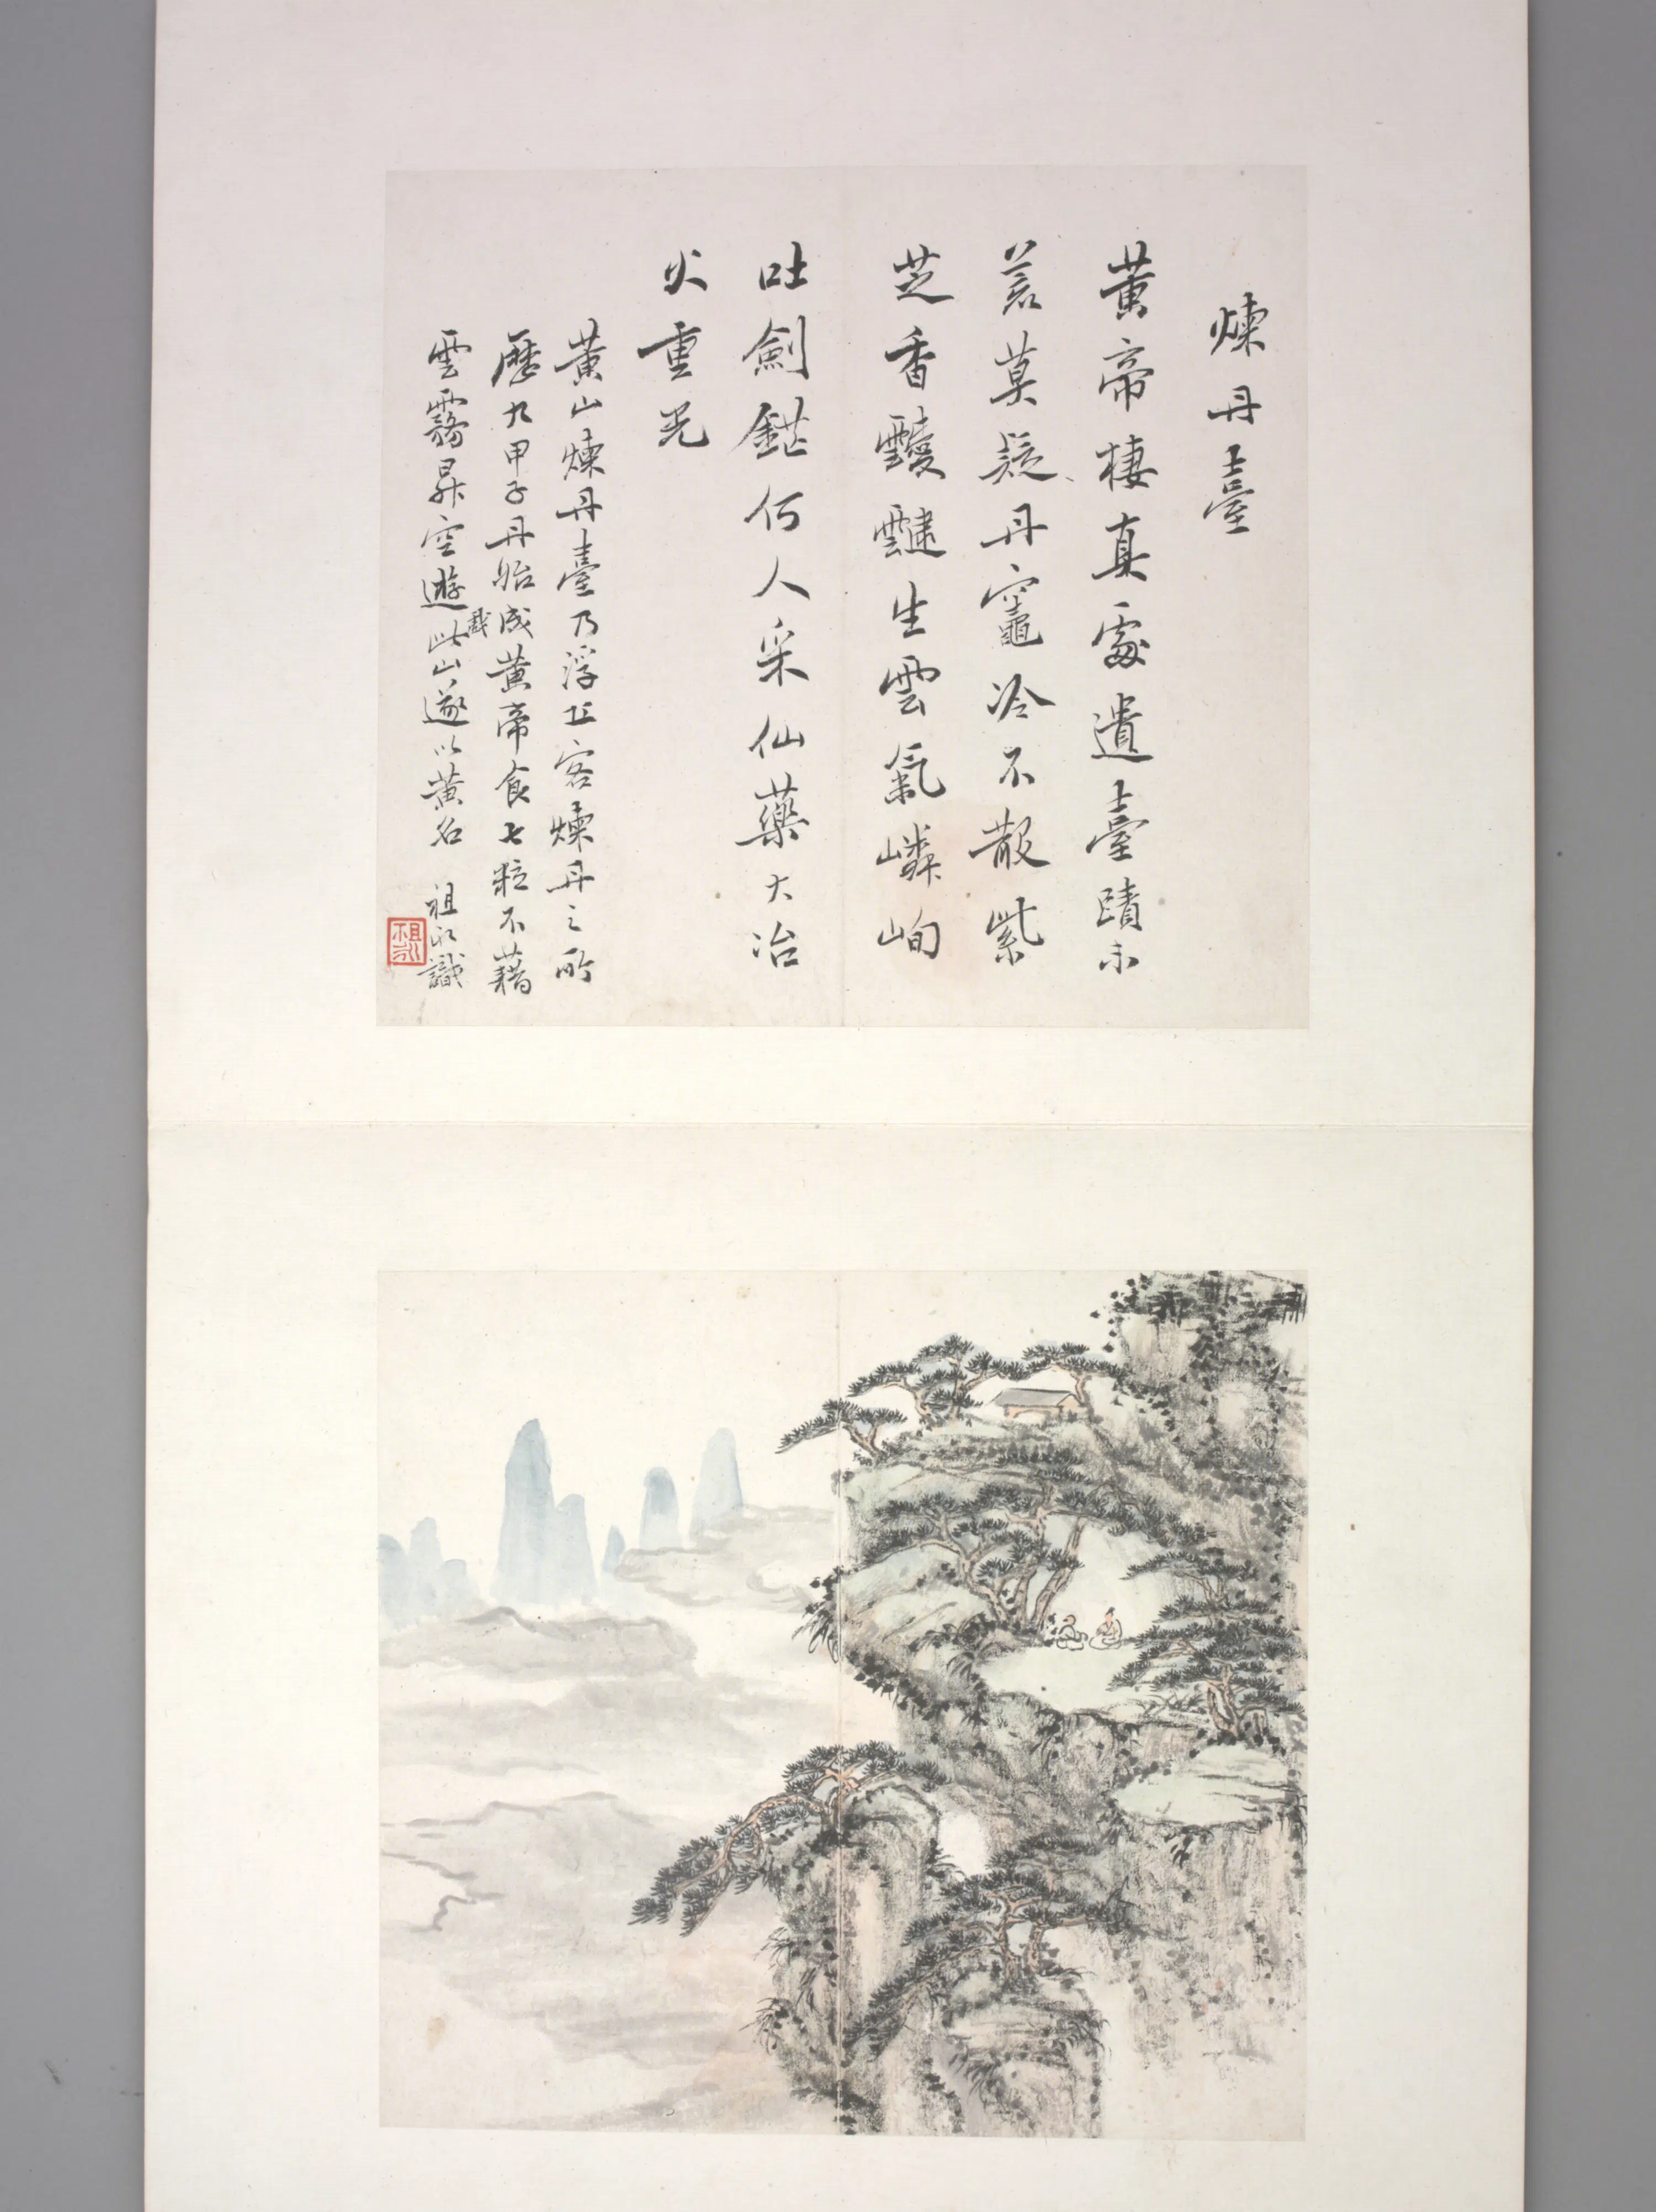 煉丹臺
黃帝棲真處遺臺蹟未
荒莫疑丹竈冷不散紫
芝香靉靆生雲氣嶙峋
吐劍鋩何人采仙藥大冶
火重光
黃山煉丹臺乃浮丘客煉丹之所
歷九甲子丹始成黃帝食七粒不藉
雲霧昇空遊戲此山遂以黃名 祖永識
祖永